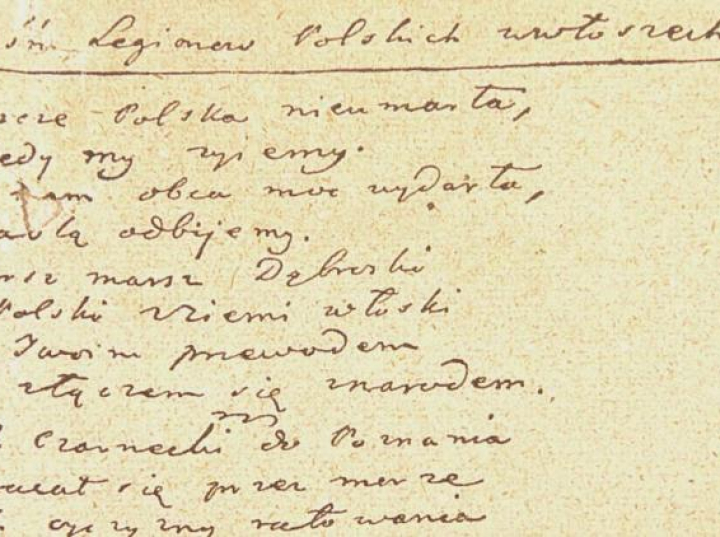 śń Legionow Polskich wewłoszech
Polska nieumarła,
my zyiemy.
nam obca moc wydarła,
odbijemy.
marsz Dąbroski
Polski zZiemi włoski
Twoim przewodem
złączem się znarodem.
Czarnecki do Poznania
się przez morze
oyczyzny ratowania